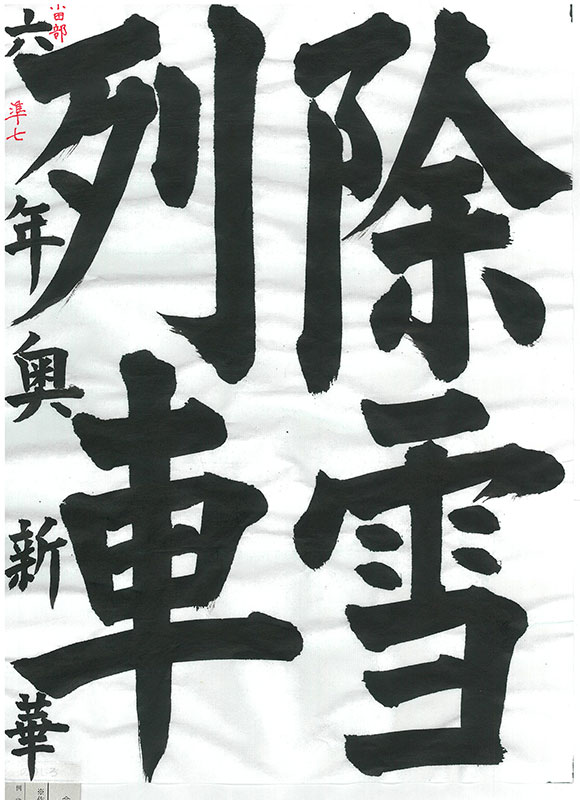 除雪
列車
六年奥新華
小田部
準七